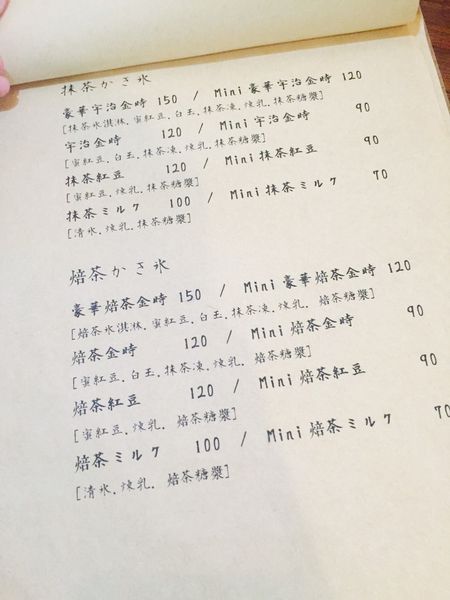 抹茶かき氷
豪華宇治金時 150 / Mini豪華宇治金時 120
[抹茶氷淇淋.蜜紅豆.白玉.抹茶凍.煉乳.抹茶糖漿]
宇治金時 120 / Mini宇治金時 90
[蜜紅豆.白玉.抹茶凍.煉乳.抹茶糖漿]
抹茶紅豆 120 / Mini抹茶紅豆 90
[蜜紅豆.煉乳.抹茶糖漿]
抹茶ミルク 100 / Mini抹茶ミルク 70
[清氷.煉乳.抹茶糖漿]
焙茶かき氷
豪華焙茶金時 150 / Mini豪華焙茶金時 120
[焙茶氷淇淋.蜜紅豆.白玉.抹茶凍.煉乳. 焙茶糖漿]
焙茶金時 120 / Mini焙茶金時 90
[蜜紅豆.白玉.抹茶凍.煉乳. 焙茶糖漿]
焙茶紅豆 120 / Mini焙茶紅豆 90
[蜜紅豆.煉乳. 焙茶糖漿]
焙茶ミルク 100 / Mini焙茶ミルク 70
[清氷.煉乳. 焙茶糖漿]